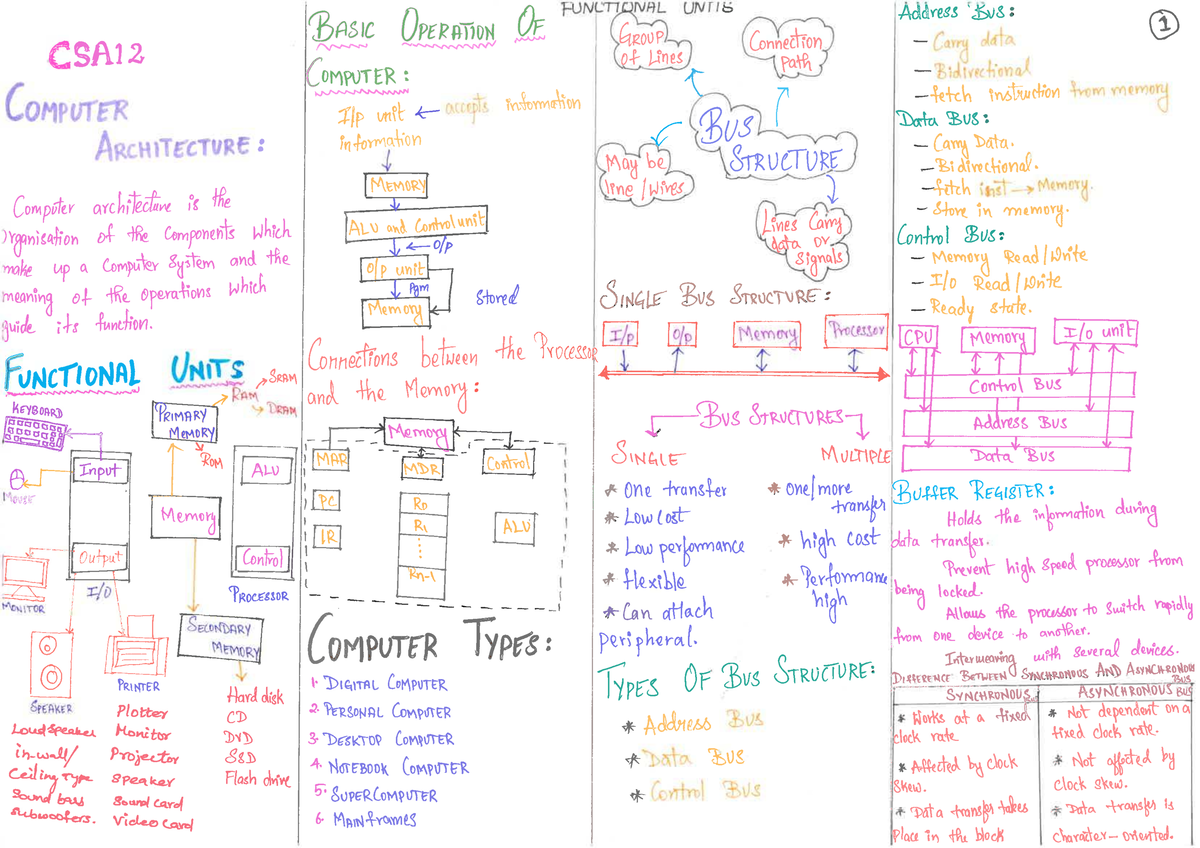 CSA12
COMPUTER
ARCHITECTURE:
Computer architecture is the
Organisation of the Components which
make up a Computer System and the
meaning of the operations which
guide its function.
FUNCTIONAL UNITS
KEYBOARD
MOUSE
Input
Output
I/O
MONITOR
SPEAKER
PRINTER
PRIMARY
MEMORY
RAM
SRAM
DRAM
ROM
Memory
SECONDARY
MEMORY
ALU
Control
PROCESSOR
Loudspeaker
in-wall/
Ceiling Type
Sound bars
Subwoofers.
Plotter
Monitor
Projector
Speaker
Sound card
Video card
Hard disk
CD
DVD
SSD
Flash drive
BASIC OPERATION OF
COMPUTER:
I/p unit ← accepts information
information
MEMORY
ALU and Control unit
← O/p
O/p unit
Pgm
Memory
Stored
Connections between the Processor
and the Memory:
Memory
MAR
MDR
Control
PC
IR
R0
R1
Rn-1
ALU
COMPUTER TYPES:
1. DIGITAL COMPUTER
2. PERSONAL COMPUTER
3. DESKTOP COMPUTER
4. NOTEBOOK COMPUTER
5. SUPERCOMPUTER
6. MAINframes
FUNCTIONAL UNITS
GROUP
of Lines
Connection
path
BUS
STRUCTURE
May be
line/wires
Lines Carry
data or
signals
SINGLE BUS STRUCTURE:
I/p
O/p
Memory
Processor
BUS STRUCTURES
SINGLE
* One transfer
* Low cost
* Low performance
* flexible
* Can attach
peripheral.
MULTIPLE
* one/more
transfer
* high cost
* Performance
high
TYPES OF BUS STRUCTURE:
* Address Bus
* Data Bus
* Control Bus
1
Address Bus:
– Carry data
– Bidirectional
– fetch instruction from memory
Data Bus:
– Carry Data.
– Bidirectional.
– fetch inst → Memory.
– Store in memory.
Control Bus:
– Memory Read/Write
– I/O Read/Write
– Ready state.
CPU
Memory
I/O unit
Control Bus
Address Bus
Data Bus
BUFFER REGISTER:
Holds the information during
data transfer.
Prevent high speed processor from
being locked.
Allows the processor to switch rapidly
from one device to another.
Intermeaning with several devices.
DIFFERENCE BETWEEN SYNCHRONOUS AND ASYNCHRONOUS
BUS
SYNCHRONOUS Bus
* Works at a fixed
clock rate
* Affected by clock
skew.
* Data transfer takes
Place in the block
ASYNCHRONOUS BUS
* Not dependent on a
fixed clock rate.
* Not affected by
clock skew.
* Data transfer is
character-oriented.